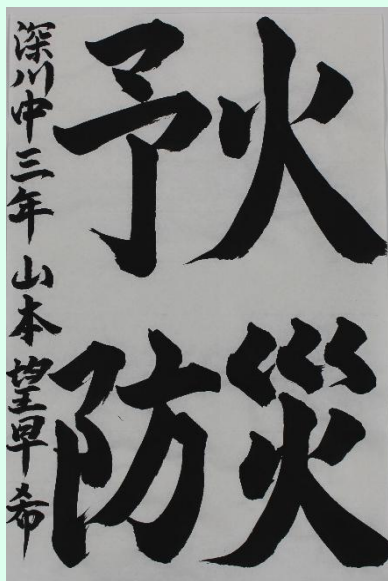 火災
予防
深川中三年 山本望早希